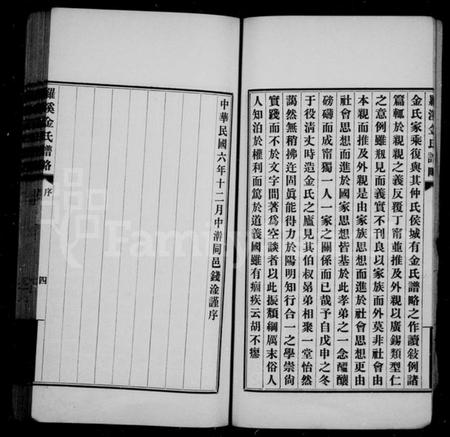 金氏家乘復與其仲氏侯城有金氏譜略之作讀敍例諸
篇輒於親親之義反覆丁甯並推及外親以廣錫類型仁
之意例雖瓶見而義實不刊良以家族而外莫非社會由
本親而推及外親是由家族思想而進於社會思想更由
社會思想而進於國家思想皆基於此孝弟之一念醞釀
磅礴而成甯獨一人一家之關係而已哉予自戊申之冬
于役清丈時造金氏之廬見其伯叔弟弟相聚一堂怡然
藹然無稍拂迕固眞能得力於陽明知行合一之學崇尙
實踐而不於文字間著爲空談者以此振類綱厲末俗人
人知泊於權利而篤於道義國雖有痼疾云胡不瘳
中華民國六年十二月中澣同邑錢淦謹序
羅溪金氏譜略
序
四
Family